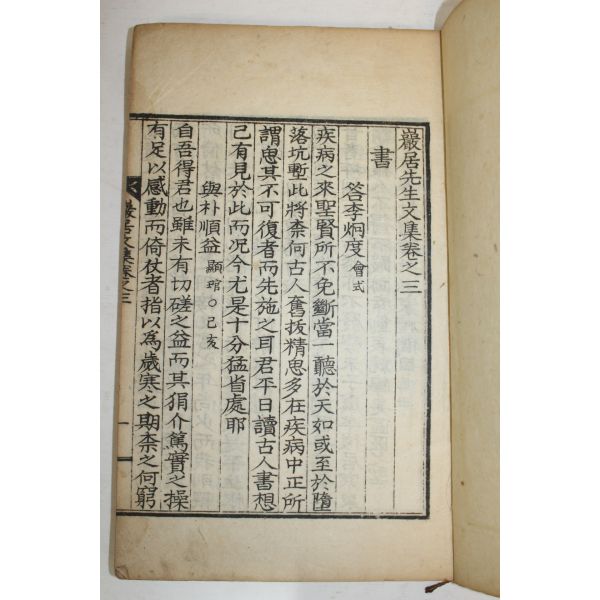 巖居先生文集卷之三
書
答李炯度 會式
疾病之來聖賢所不免斷當一聽於天如或至於墮
落坑塹此將柰何古人奮拔精思多在疾病中正所
謂思其不可復者而先施之耳君平日讀古人書想
己有見於此而况今尤是十分猛省處耶
與朴順益 顯琯○己亥
自吾得君也雖未有切磋之益而其狷介篤實之操
有足以感動而倚仗者指以為歲寒之期柰之何窮
巖居文集卷之三
一